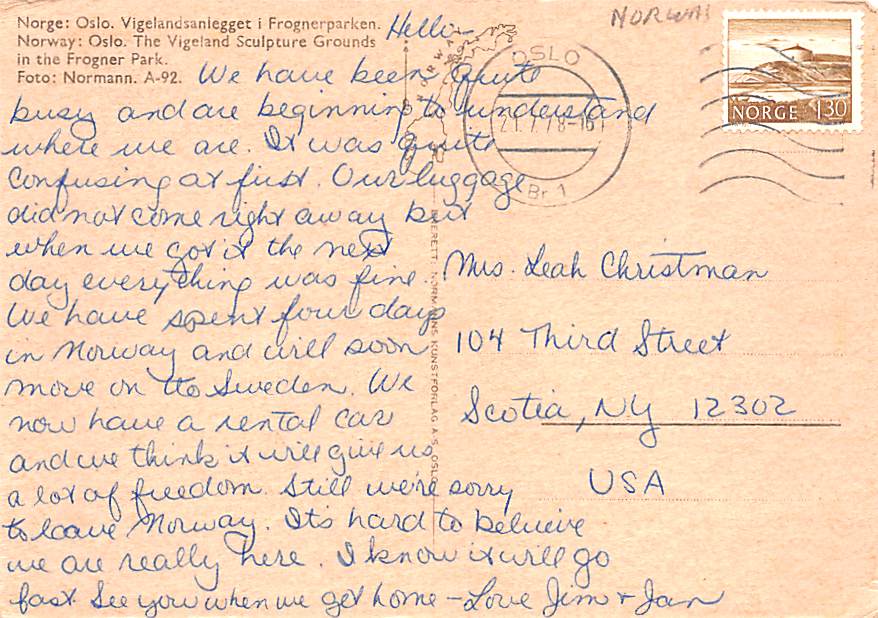 Norge: Oslo. Vigelandsanlegget i Frognerparken.
Norway: Oslo. The Vigeland Sculpture Grounds
in the Frogner Park.
Foto: Normann. A-92.
Hello-
We have been quite
busy and are beginning to understand
where we are. It was quite
confusing at first. Our luggage
did not come right away but
when we got it the next
day everything was fine.
We have spent four days
in Norway and will soon
move on to Sweden. We
now have a rental car
and we think it will give us
a lot of freedom. Still we're sorry
to leave Norway. It's hard to believe
we are really here. I know it will go
fast. See you when we get home - Love Jim + Jan
NORWAY
NORMANNS KUNSTFORLAG A.S. OSLO
NORWAY
OSLO
Br 1
NORGE 130
Mrs. Leah Christman
104 Third Street
Scotia, NY 12302
USA